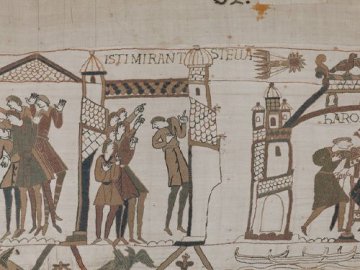 ISTI MIRANT STELLA
HARO